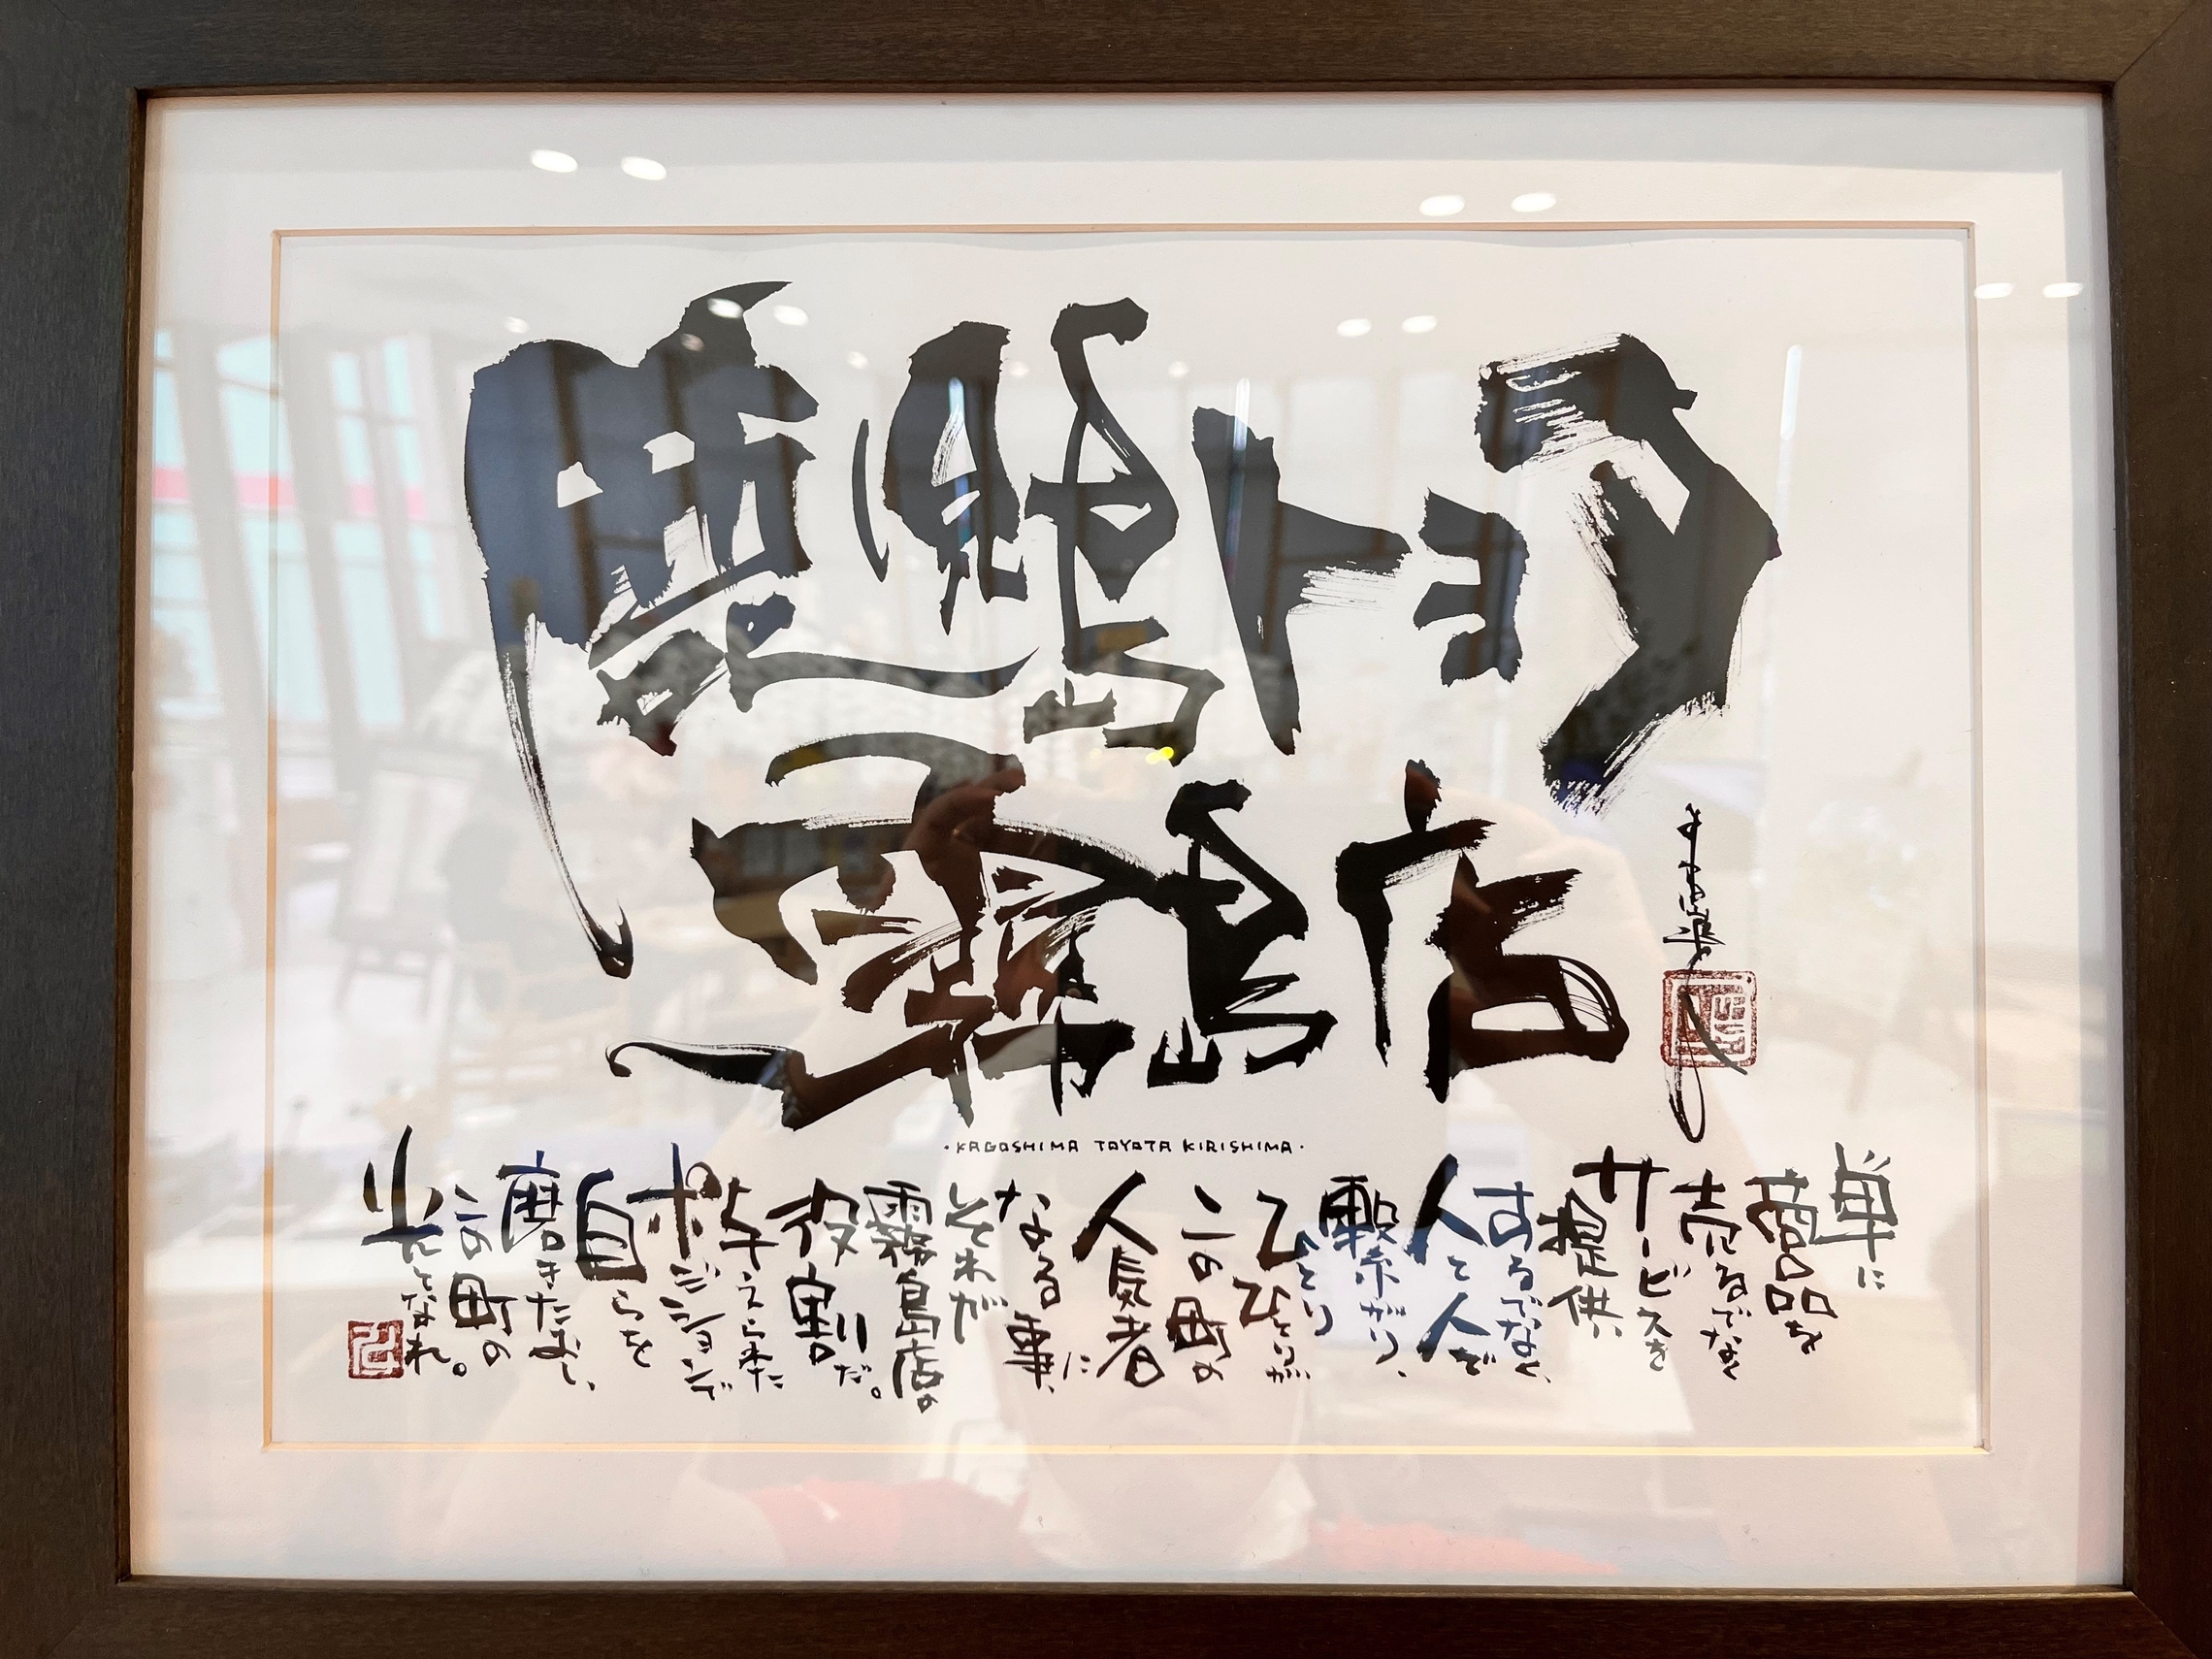 鹿児島トヨタ
霧島店
・KAGOSHIMA TOYOTA KIRISHIMA・
単に
商品を
売るでなく
サービスを
提供
するでなく、
人と人で
繋がり、
ひとり
ひとりが
この町の
人気者に
なる事、
それが
霧島店の
役割だ。
与えられた
ポジションで
自らを
磨きたおし、
この町の
光となれ。